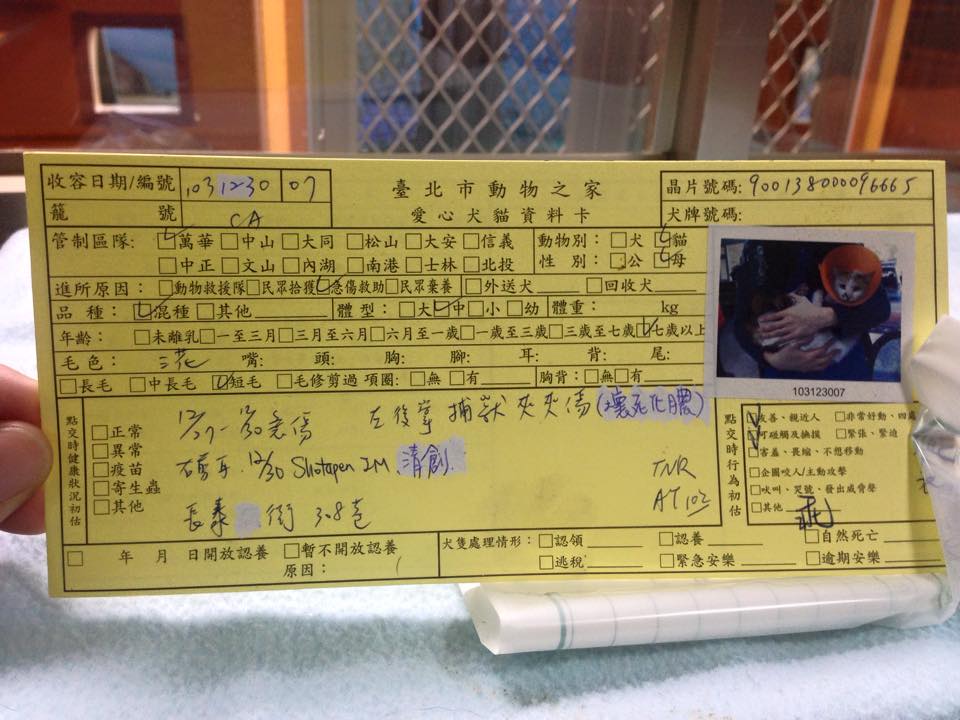 收容日期/編號 103 12 30 07 臺北市動物之家 晶片號碼: 900138000096665
籠 號 CA 愛心犬貓資料卡 犬牌號碼:
管制區隊: ☑萬華 □中山 □大同 □松山 □大安 □信義 動物別: □犬 ☑貓
□中正 □文山 □內湖 □南港 □士林 □北投 性 別: □公 ☑母
進所原因: □動物救援隊 □民眾拾獲 ☑急傷救助 □民眾棄養 □外送犬 □回收犬
品 種: ☑混種 □其他 體 型: □大 ☑中 □小 □幼 體重: kg
年齡: □未離乳 □一至三月 □三月至六月 □六月至一歲 □一歲至三歲 □三歲至七歲 ☑七歲以上
毛色: 三花 嘴: 頭: 胸: 腳: 耳: 背: 尾:
□長毛 □中長毛 ☑短毛 □毛修剪過 項圈: □無 □有 胸背: □無 □有
103123007
點交時健康狀況初估
□正常
□異常
□疫苗
□寄生蟲
□其他
12/29-12/30急傷 左後掌 捕獸夾夾傷(壞死化膿)
12/30 Shotapen IM 清創
長泰 街 308巷
TNR
AT102
點交時行為初估
☑友善、親近人 □非常好動、四處
☑可碰觸及撫摸 □緊張、緊迫
□害羞、畏縮、不想移動
□企圖咬人/主動攻擊
□吠叫、哭號、發出威脅聲
□其他 乖
□ 年 月 日開放認養 □暫不開放認養
原因:
犬隻處理情形: □認領 □認養 □自然死亡
□逃脫 □緊急安樂 □逾期安樂